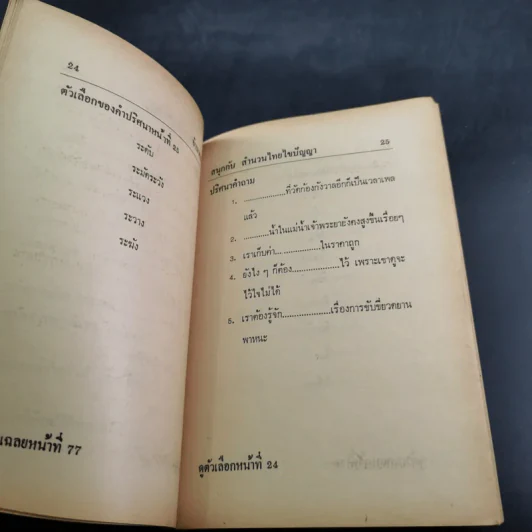 24
ตัวเลือกของคำปริศนาหน้าที่ 25
ระดับ
ระมัดระวัง
ระแวง
ระวาง
ระฆัง
เฉลยหน้าที่ 77
สนุกกับ สำนวนไทยไขปัญญา 25
ปริศนาคำถาม
1. ................ที่วัดก้องกังวาลอีกก็เป็นเวลาเพล
แล้ว
2. ..........น้ำในแม่น้ำเจ้าพระยายังคงสูงขึ้นเรื่อยๆ
3. เราเก็บค่า................ในราคาถูก
4. ยังไง ๆ ก็ต้อง.................ไว้ เพราะเขาดูจะ
ไว้ใจไม่ได้
5. เราต้องรู้จัก.................เรื่องการขับขี่ยวดยาน
พาหนะ
ดูตัวเลือกหน้าที่ 24